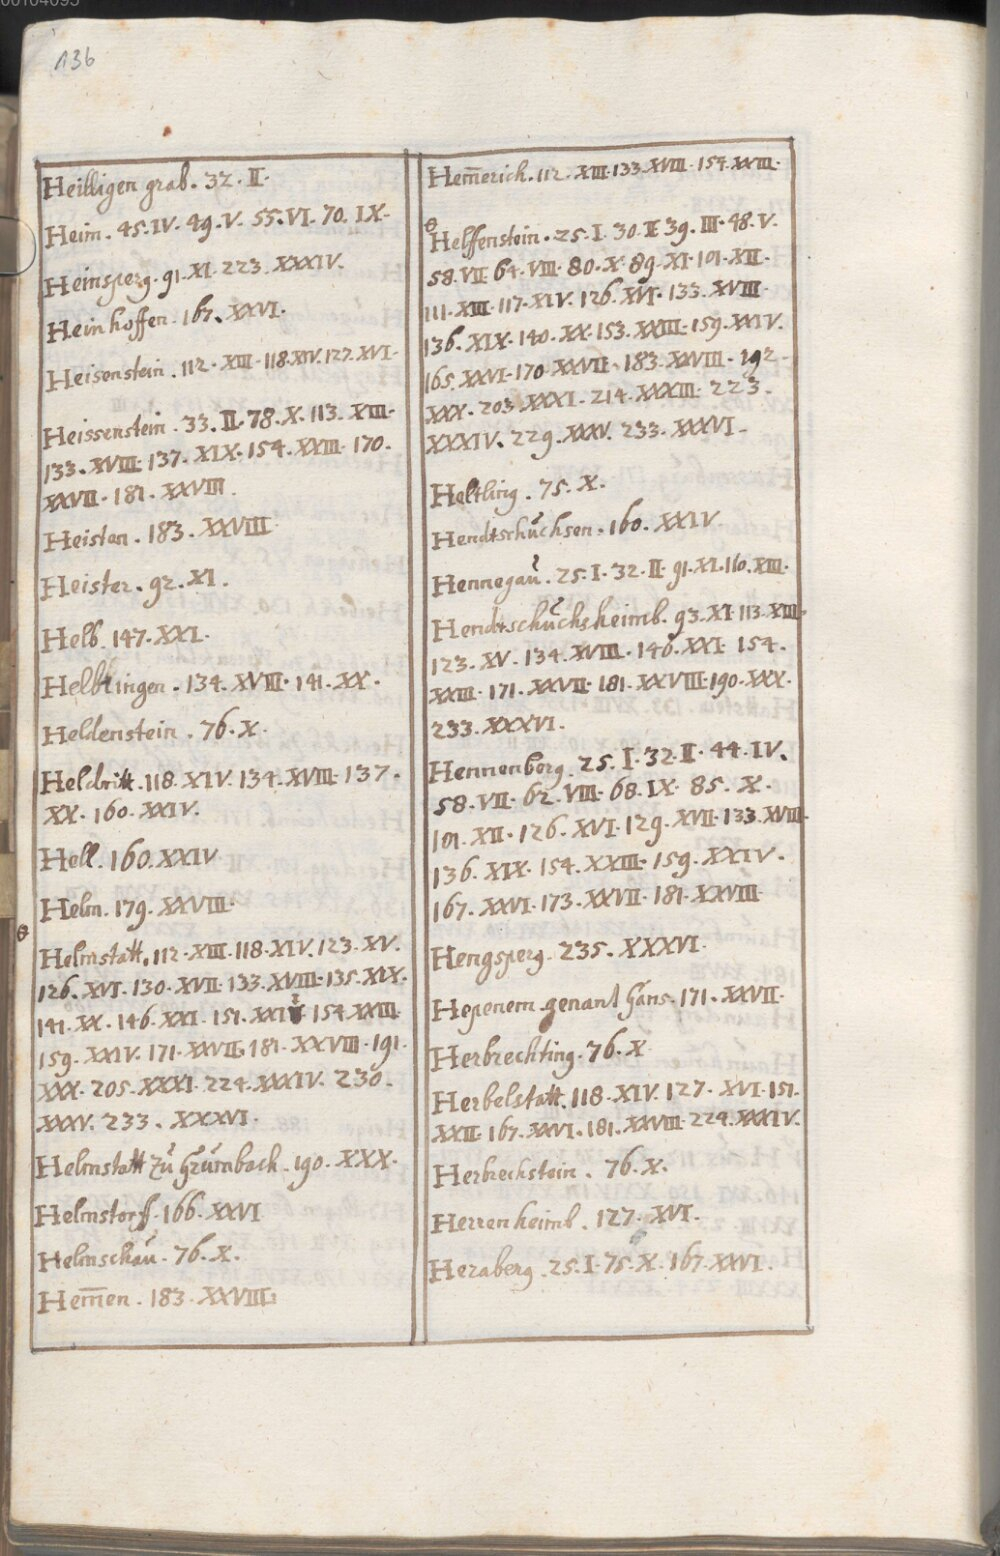 136
Heilligen grab. 32. II.
Heim. 45. IV. 49. V. 55. VI. 70. IX.
Heinsperg. 91. XI. 223. XXXIV.
Heinhoffen. 167. XXVI.
Heisenstein. 112. XIII. 118. XIV. 127. XVI.
Heissenstein. 33. II. 78. X. 113. XIII.
133. XVIII. 137. XIX. 154. XXIII. 170.
XXVII. 181. XXVIII.
Heistan. 183. XXVIII
Heister. 92. XI.
Helb. 147. XXI.
Helblingen. 134. XVIII. 141. XX.
Heldenstein. 76. X.
Heldritt. 118. XIV. 134. XVIII. 137.
XX. 160. XXIV.
Hell. 160. XXIV
Helm. 179. XXVIII.
Helmstatt. 112. XIII. 118. XIV. 123. XV.
126. XVI. 130. XVII. 133. XVIII. 135. XIX.
141. XX. 146. XXI. 151. 154. XXIII.
159. XXIV. 171. XXVII. 181. XXVIII. 191.
XXX. 205. XXXI. 224. XXXIV. 230.
XXXV. 233. XXXVI.
Helmstatt zů Grůmbach. 190. XXX.
Helmstorff. 166. XXVI
Helmschaů. 76. X.
Hem̅en. 183. XXVIII.
Hem̅erich. 112. XIII. 133. XVIII. 154. XXIII.
Helffenstein. 25. I. 30. II 39. III. 48. V.
58. VII 64. VIII. 80. X. 89. XI. 101. XII.
111. XIII. 117. XIV. 126. XVI. 133. XVIII.
136. XIX. 140. XX. 153. XXIII. 159. XXIV.
165. XXVI. 170. XXVII. 183. XXVIII. 192.
XXX. 203. XXXI. 214. XXXIII. 223.
XXXIV. 229. XXXV. 233. XXXVI.
Heltling. 75. X.
Hendtschůchsen. 160. XXIV
Hennegaů. 25. I. 32. II. 91. XI. 110. XIII.
Hendtschůchsheimb. 93. XI. 113. XIII.
123. XV. 134. XVIII. 146. XXI. 154.
XXIII. 171. XXVII. 181. XXVIII. 190. XXX.
233. XXXVI.
Hennenberg. 25. I. 32. II. 44. IV.
58. VII. 62. VIII. 68. IX. 85. X.
101. XII. 126. XVI. 129. XVII. 133. XVIII.
136. XIX. 154. XXIII. 159. XXIV.
167. XXVI. 173. XXVII. 181. XXVIII
Hengsperg. 235. XXXVI.
Hepenem genant Gans. 171. XXVII.
Herbrechting. 76. X
Herbelstatt. 118. XIV. 127. XVI. 151.
XXII. 167. XXVI. 181. XXVIII. 224. XXXIV.
Herbreckstein. 76. X.
Herrenheimb. 127. XVI.
Heraberg. 25. I. 75. X. 167. XXVI.